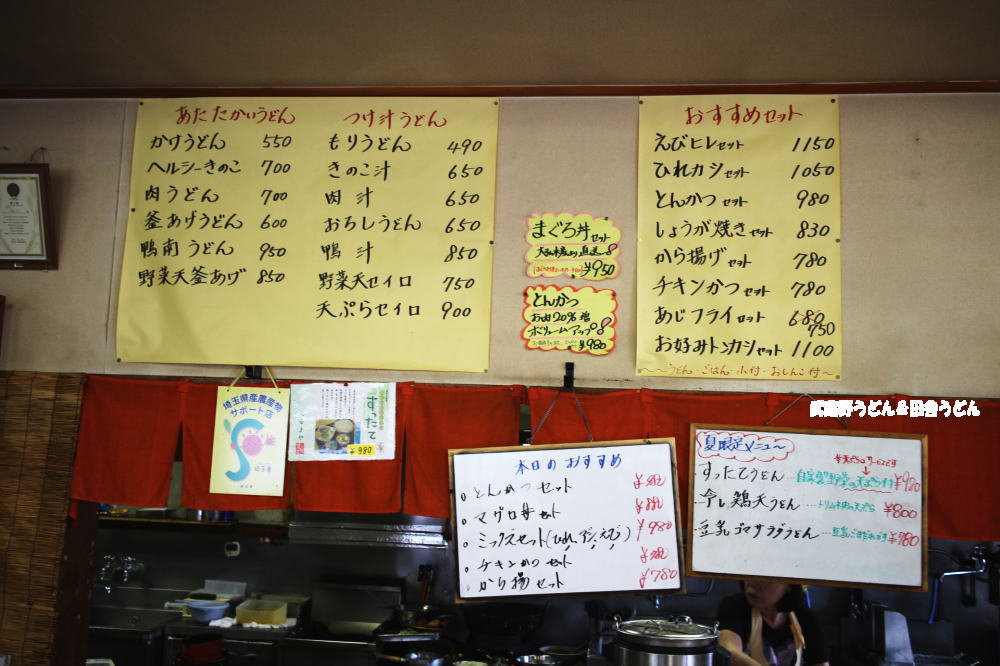 あたたかいうどん
かけうどん 550
ヘルシーきのこ 700
肉うどん 700
釜あげうどん 600
鴨南うどん 950
野菜天釜あげ 850
つけ汁うどん
もりうどん 490
きのこ汁 650
肉汁 650
おろしうどん 650
鴨汁 850
野菜天セイロ 750
天ぷらセイロ 900
まぐろ丼セット
¥950
とんかつ
お肉20%増
ボリュームアップ
¥980
おすすめセット
えびヒレセット 1150
ひれカシセット 1050
とんかつセット 980
しょうが焼きセット 830
から揚げセット 780
チキンかつセット 780
あじフライセット 680
750
お好みトンカシセット 1100
〜うどん・ごはん・小付・おしんこ付〜
埼玉県産農産物
サポート店
埼玉県
すったて
¥980
本日のおすすめ
とんかつセット
マグロ丼セット
ミックスセット(ひれ,アジ,えび) ¥980
チキンかつセット
から揚セット ¥780
武蔵野うどん&田舎うどん
夏限定メニュー
すったてうどん 自家製野菜の天ぷら付 ¥920
冷し鶏天うどん ¥800
豆乳ゴマサラダうどん ¥980